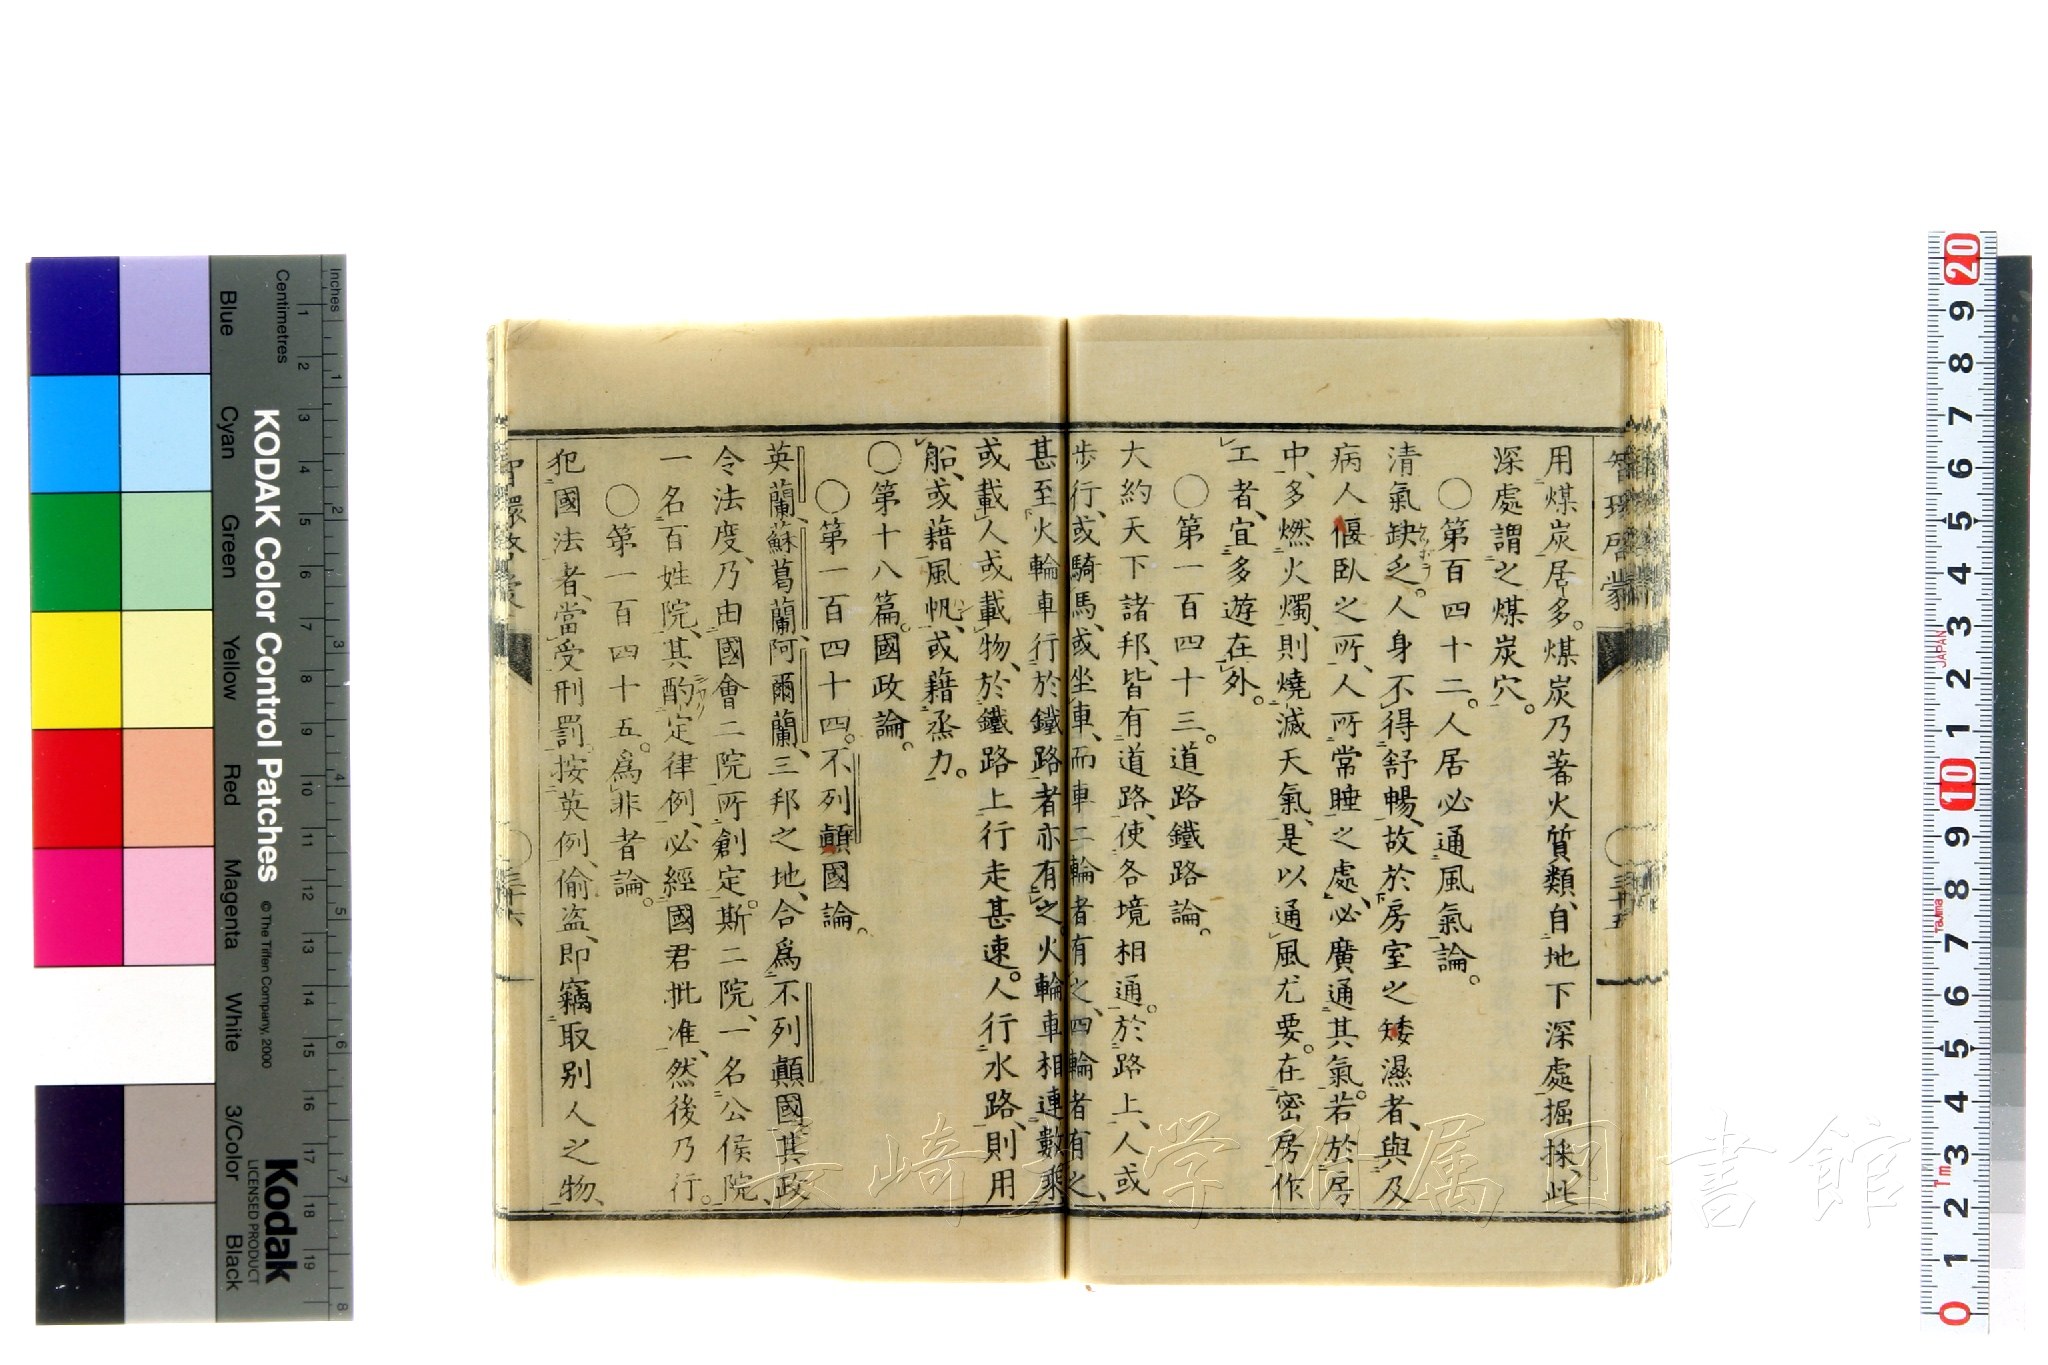 智環啓蒙
三十五
用煤炭居多。煤炭乃著火質類、自地下深處掘採、此
深處謂之煤炭穴。
〇第百四十二。人居必通風氣論。
清氣缺乏。人身不得舒暢、故於房室之矮濕者、與及
病人偃臥之所、人所常睡之處、必廣通其氣。若於房
中、多燃火燭、則燒滅天氣、是以通風尤要。在密房作
工者、宜多遊在外。
〇第一百四十三。道路鐵路論。
大約天下諸邦、皆有道路、使各境相通。於路上、人或
步行、或騎馬、或坐車、而車二輪者有之、四輪者有之、
甚至火輪車行於鐵路者亦有之、火輪車相連數乘
或載人或載物、於鐵路上行走甚速。人行水路、則用
船、或藉風帆、或藉烝力。
〇第十八篇。國政論。
〇第一百四十四。不列顛國論。
英蘭、蘇葛蘭、阿爾蘭、三邦之地、合爲不列顛國、其政
令法度、乃由國會二院所創定。斯二院、一名公侯院、
一名百姓院、其酌定律例、必經國君批准、然後乃行。
〇第一百四十五。爲非者論。
犯國法者、當受刑罰、按英例、偷盜、即竊取別人之物、
三十六
長崎大学附属図書館
KODAK Color Control Patches
© The Tiffen Company, 2000
Kodak
LICENSED PRODUCT
Inches
Centimetres
Blue
Cyan
Green
Yellow
Red
Magenta
White
3/Color
Black
JAPAN
Tajima